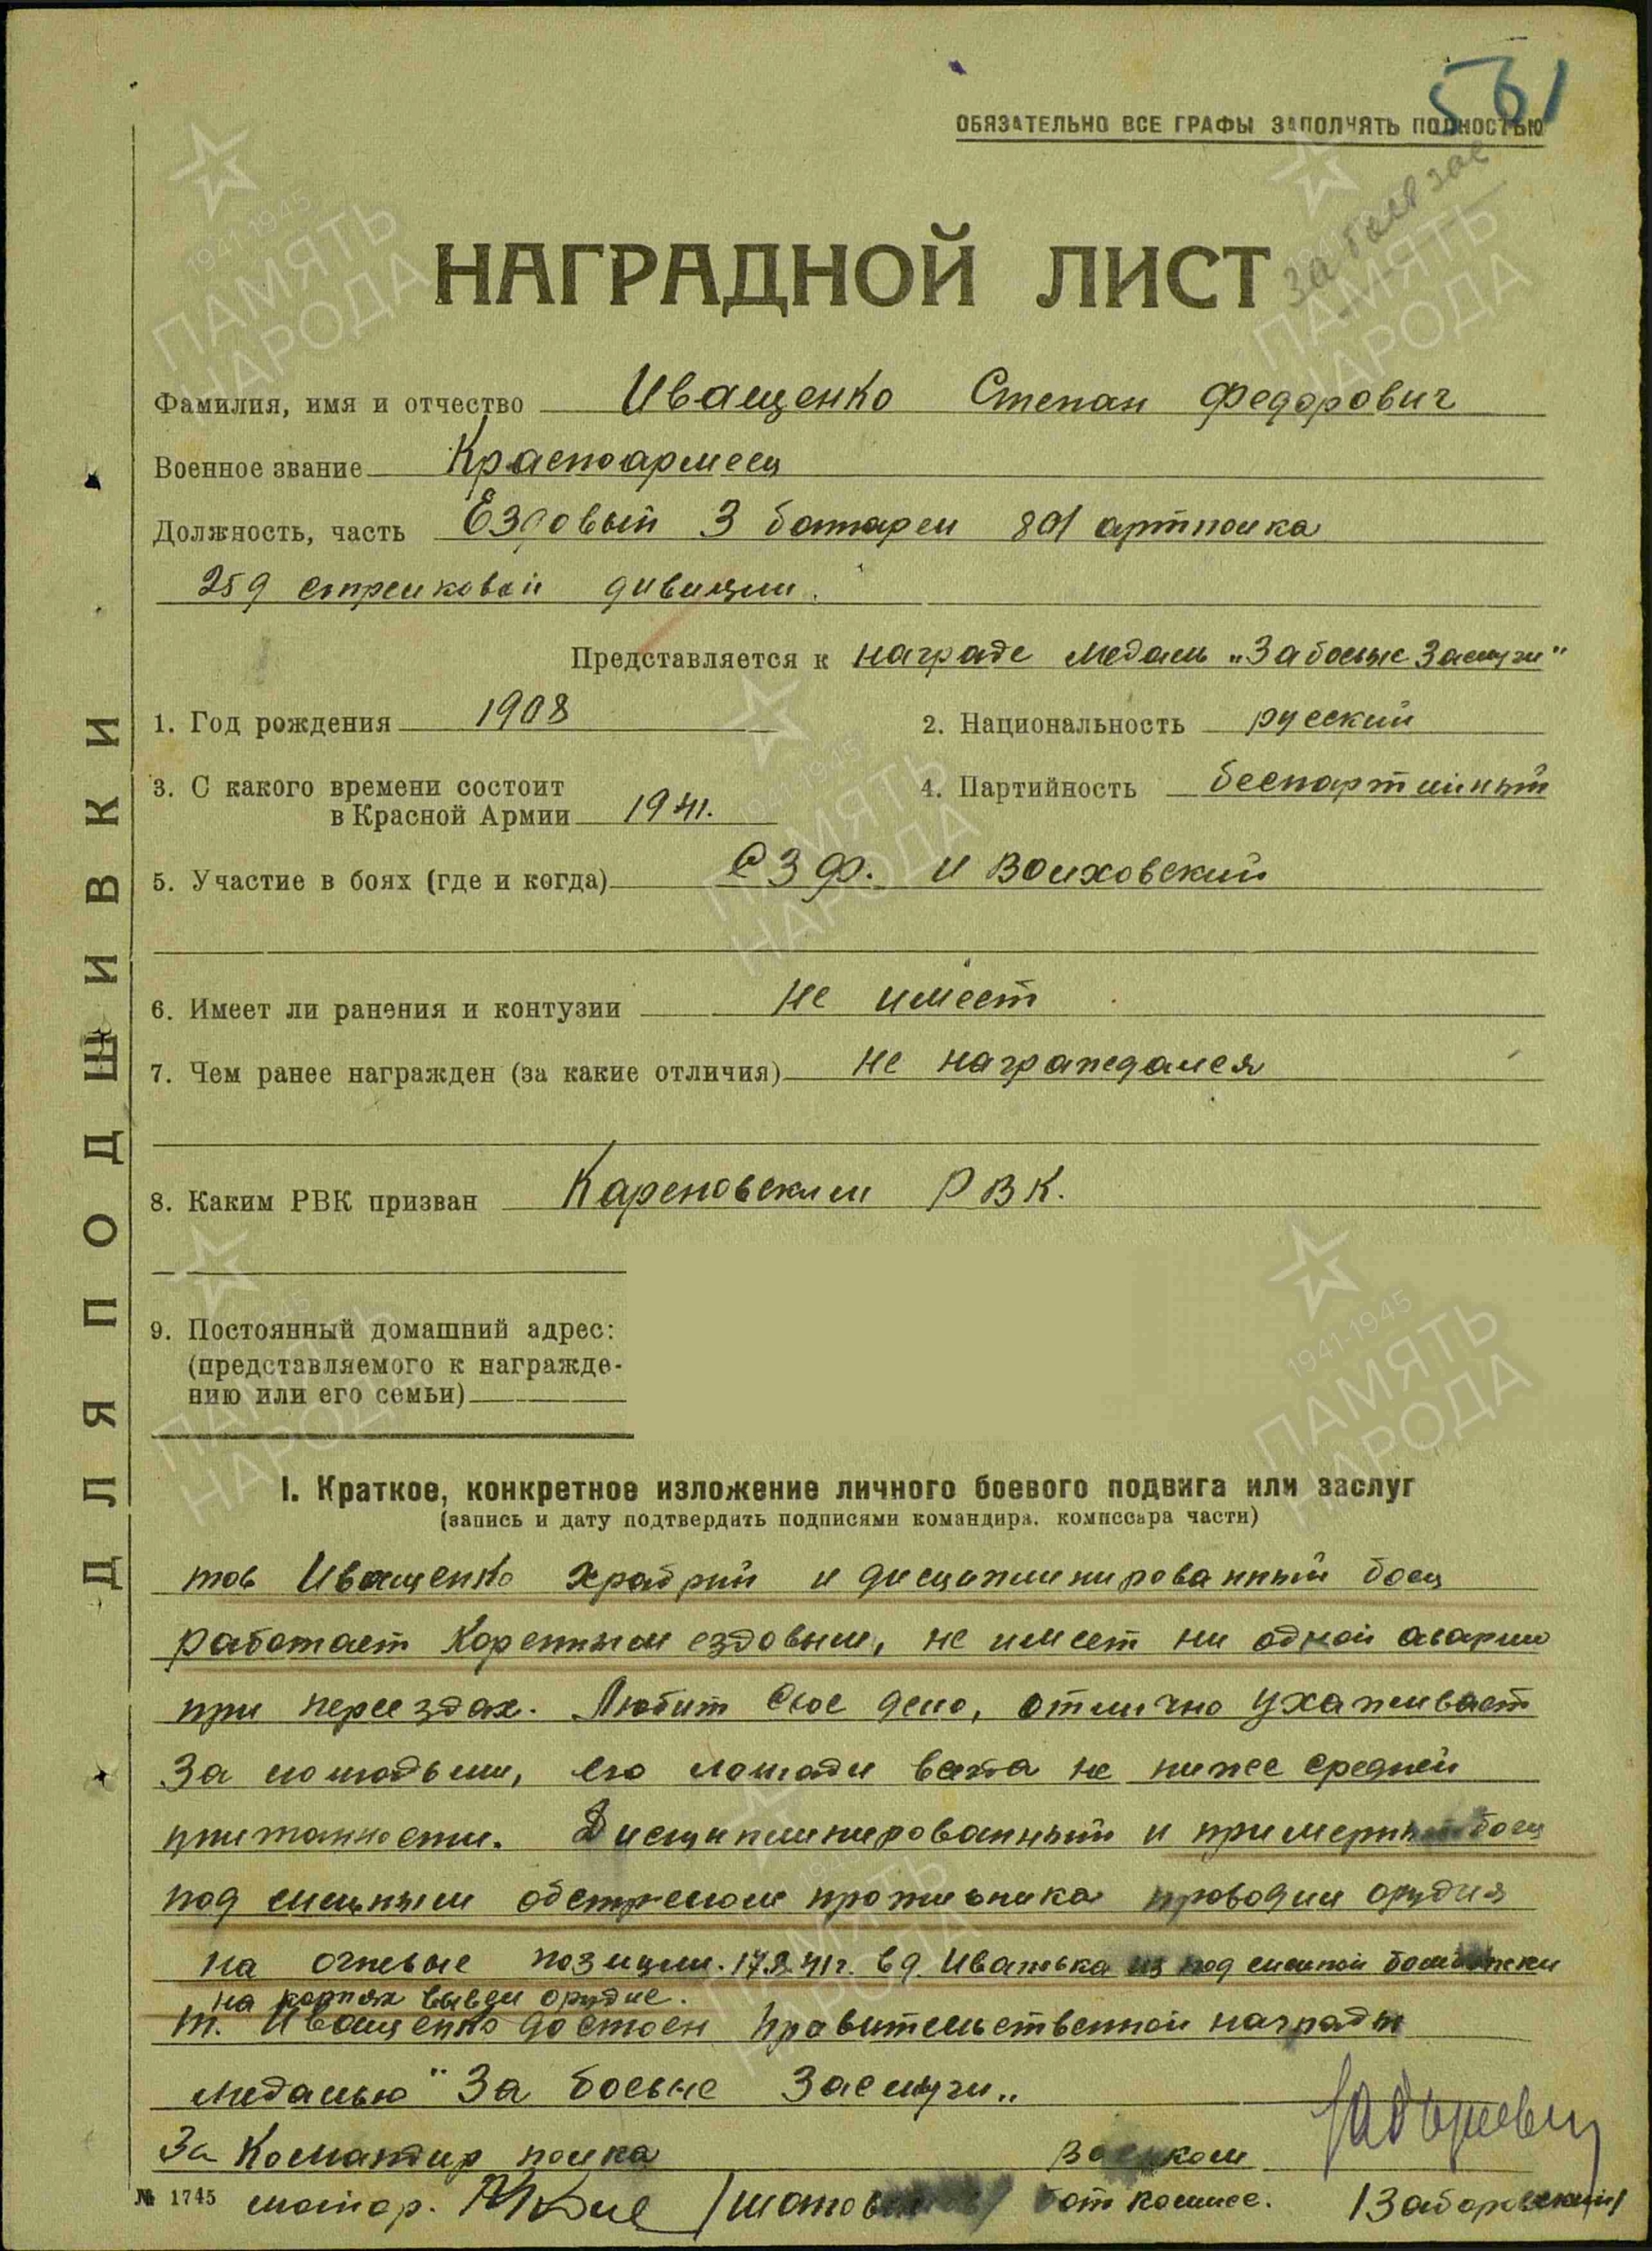 561
ОБЯЗАТЕЛЬНО ВСЕ ГРАФЫ ЗАПОЛНЯТЬ ПОЛНОСТЬЮ
НАГРАДНОЙ ЛИСТ
Фамилия, имя и отчество Иващенко Степан Федорович
Военное звание Красноармеец
Должность, часть Ездовый 3 батареи 801 артполка
259 стрелковой дивизии.
Представляется к награде медаль „За боевые Заслуги"
1. Год рождения 1908
2. Национальность русский
3. С какого времени состоит
в Красной Армии 1941.
4. Партийность беспартийный
5. Участие в боях (где и когда) СЗФ. и Волховский
6. Имеет ли ранения и контузии не имеет
7. Чем ранее награжден (за какие отличия) не награждался
8. Каким РВК призван РВК.
9. Постоянный домашний адрес:
(представляемого к награжде-
нию или его семьи)
ДЛЯ ПОДШИВКИ
I. Краткое, конкретное изложение личного боевого подвига или заслуг
(запись и дату подтвердить подписями командира, комиссара части)
тов Иващенко храбрый и дисциплинированный боец
работает Коренным ездовым, не имеет ни одной аварии
при переездах. Любит свое дело, отлично ухаживает
За лошадьми, его лошади всегда не ниже средней
упитанности. Дисциплинированный и примерный боец
под сильным обстрелом противника проводил орудия
на огневые позиции. в д. Ивановка из под сильной бомбежки
на вывел орудие.
т. Иващенко достоен правительственной награды
медалью "За боевые Заслуги„
За Командир полка Военком
№ 1745 майор. бат комисс. /Заборовский/
1941-1945
ПАМЯТЬ
НАРОДА